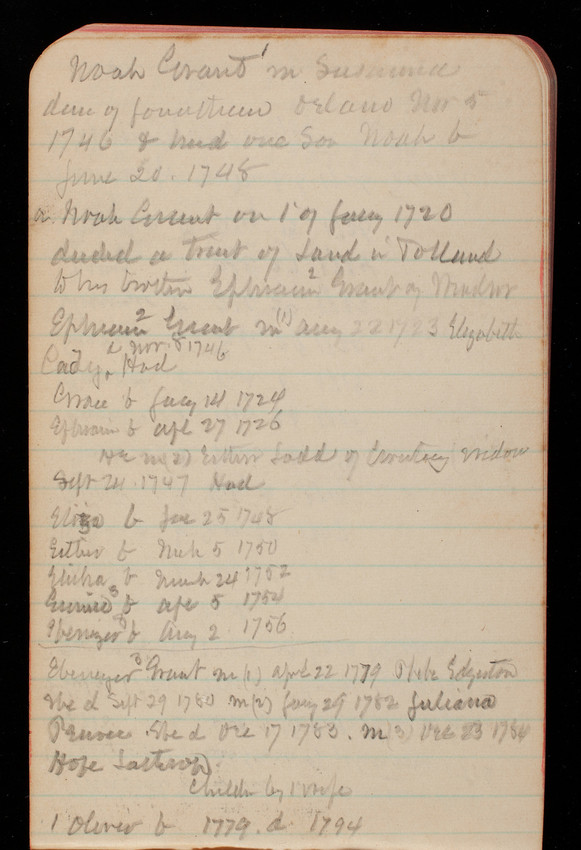 Noah Grant' m. Susanna
Nov 5
1746 & had one Son Noah b
June 20. 1748
a Noah Grant on 1' of Jany 1720
deeded a Tract of Land in Tolland
to his brother Ephraim 2 Grant of Windsor
Ephraim 2 Grant m (1) Aug 22 1723 Elizabeth
d Nov 8 1746
Cady, Had
Grace b Jany 14 1724
Ephraim b Apl 27 1726
He m (2) Esther Ladd of Coventry widow
Sept 24 1747 Had
b 25 1748
Esther b Mch 5 1750
Elisha b March 24 1752
Eunice 3 b Apl 5 1754
Ebenezer 3 b Aug 2. 1756
Ebenezer 3 Grant m (1) April 22 1779 Phebe Edgerton
She d Sept 29 1780 m (2) Jany 29 1782 Juliana
She d Dec 17 1783. m (3) Dec 23 1784
Hope Lathrop.
Childn by 1 wife
1 Oliver b 1779. d 1794